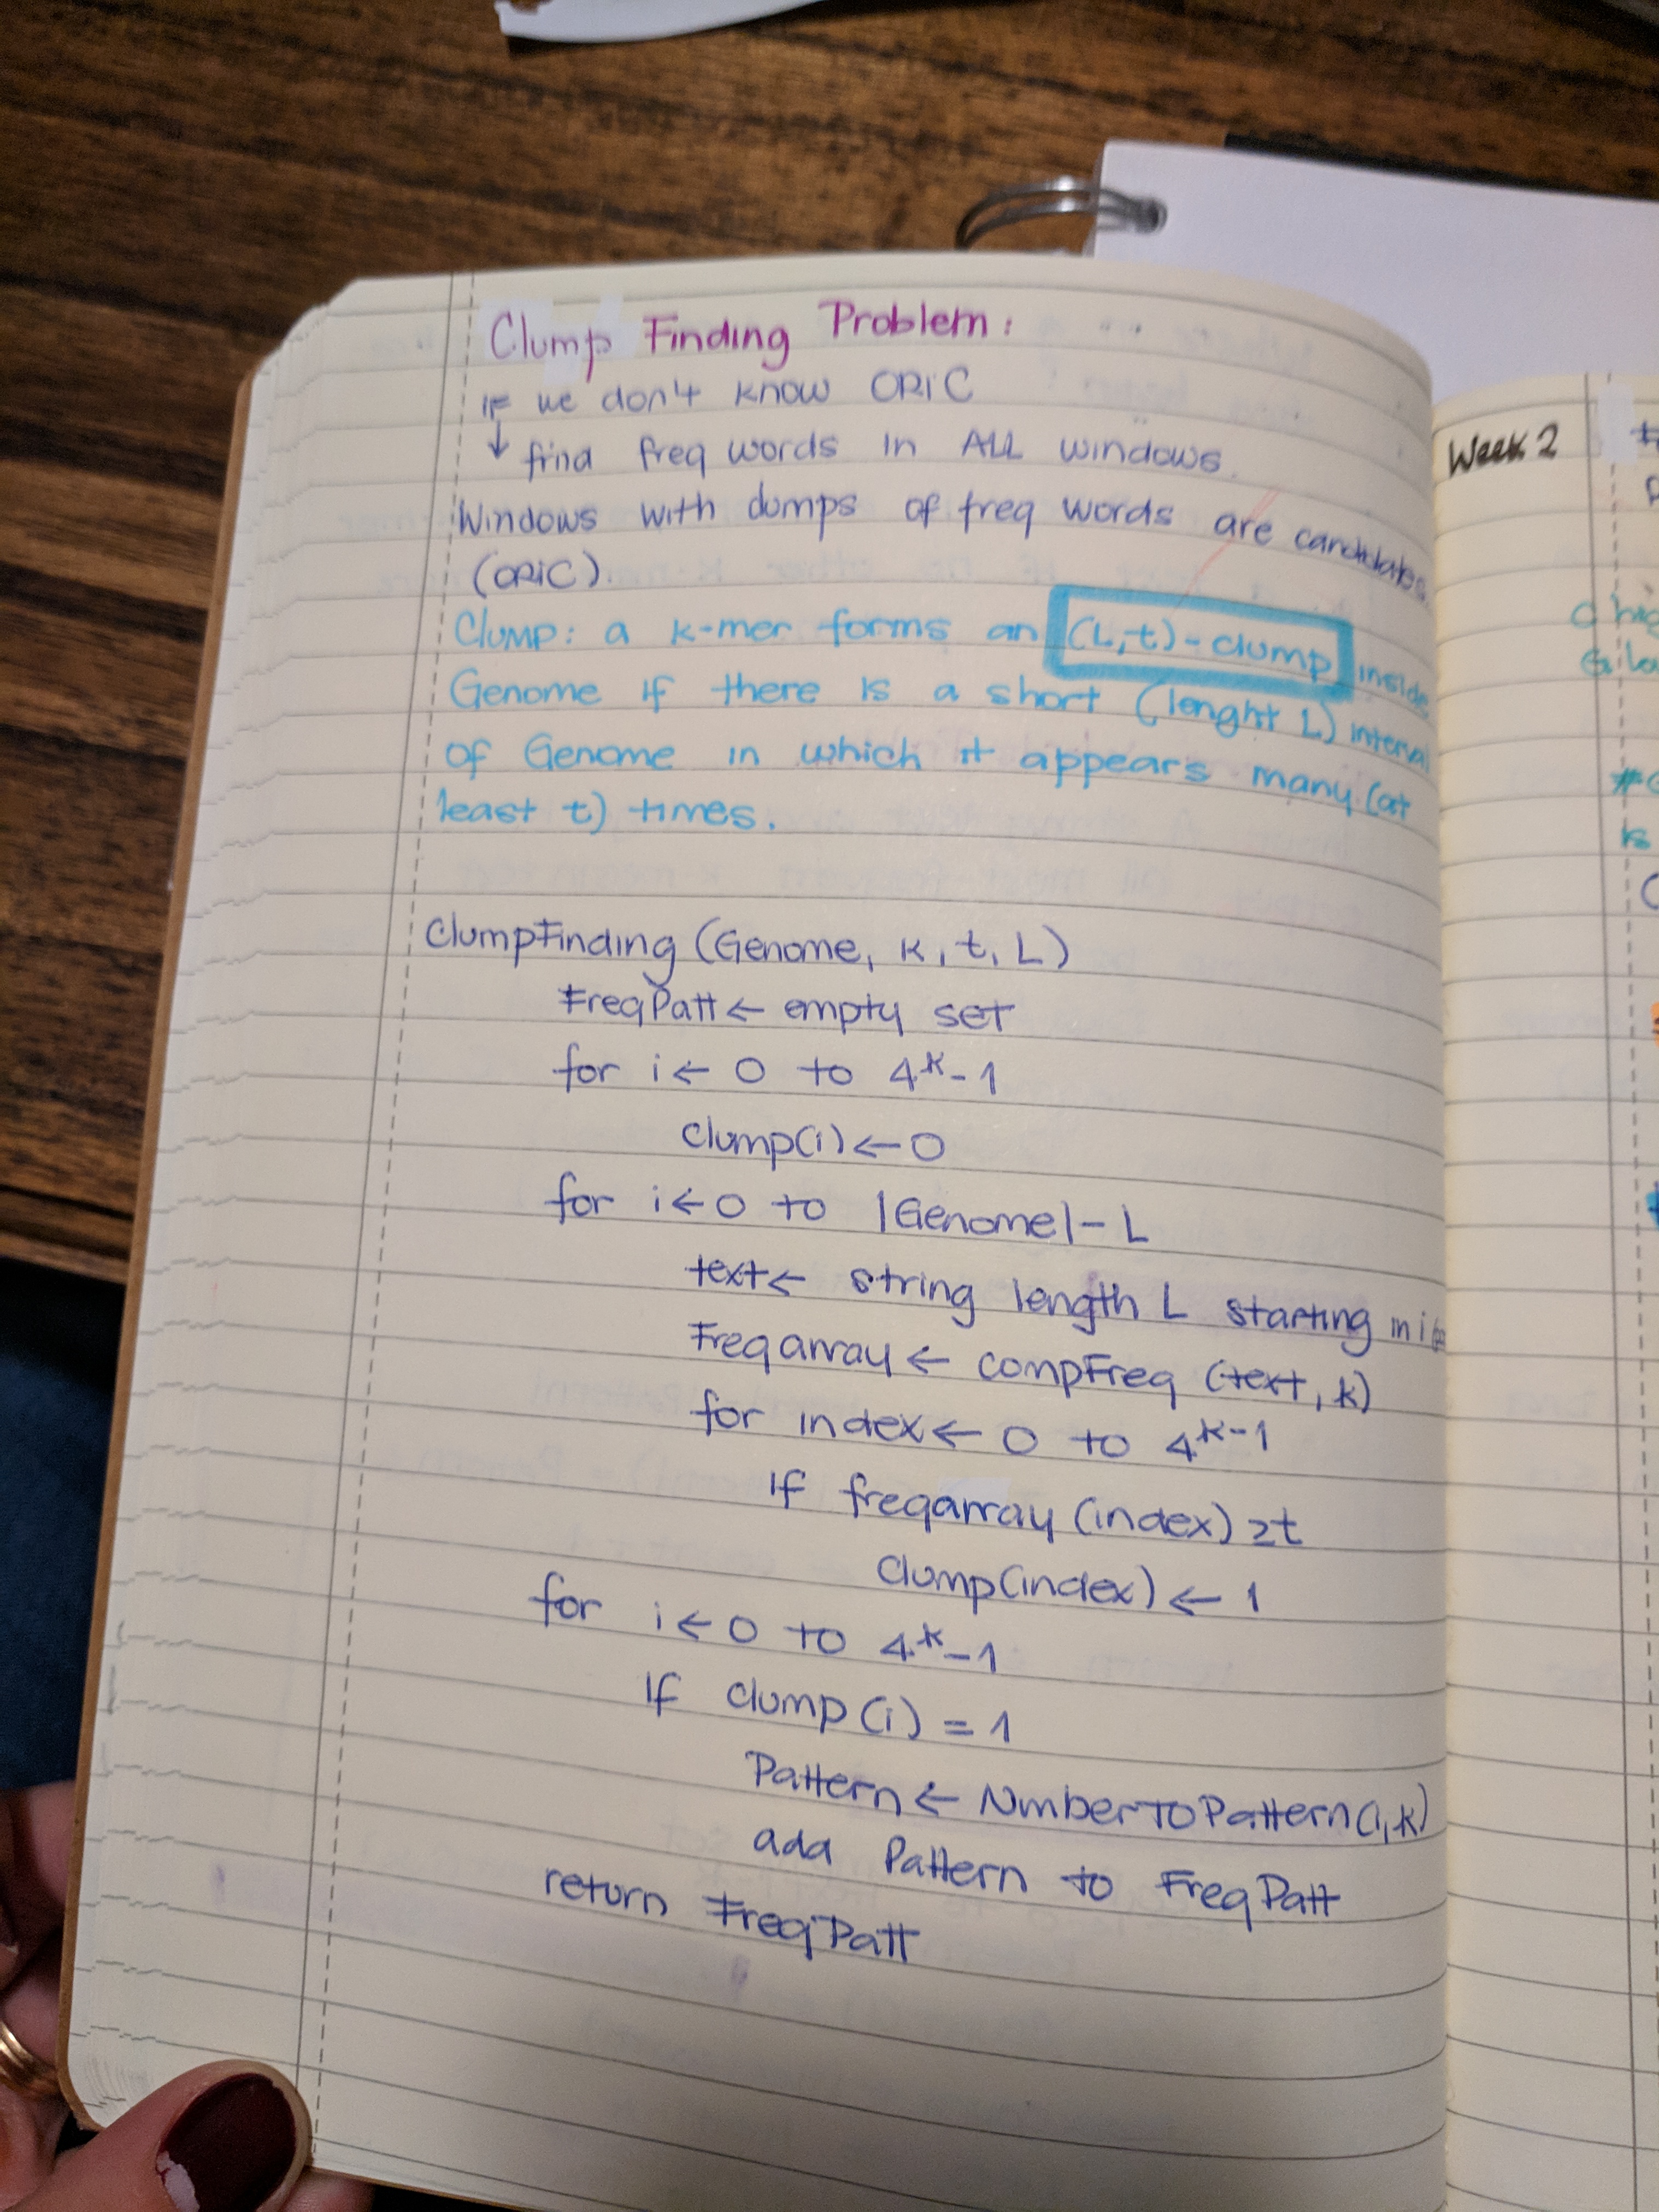 Clump Finding Problem:
IF we don't know ORiC
↓ find freq words in ALL windows.
Windows with clumps of freq words are candidates
(ORiC).
Clump: a k-mer forms an (L,t)-clump inside
Genome if there is a short (lenght L) interval
of Genome in which it appears many (at
least t) times.
ClumpFinding (Genome, k, t, L)
FreqPatt ← empty set
for i ← 0 to 4^k - 1
clump(i) ← 0
for i ← 0 to |Genome| - L
text ← string length L starting in i
Freqarray ← compFreq (text, k)
for index ← 0 to 4^k-1
if freqarray (index) ≥ t
clump(index) ← 1
for i ← 0 to 4^k - 1
if clump (i) = 1
Pattern ← NumberToPattern(i, k)
add Pattern to FreqPatt
return FreqPatt
Week 2